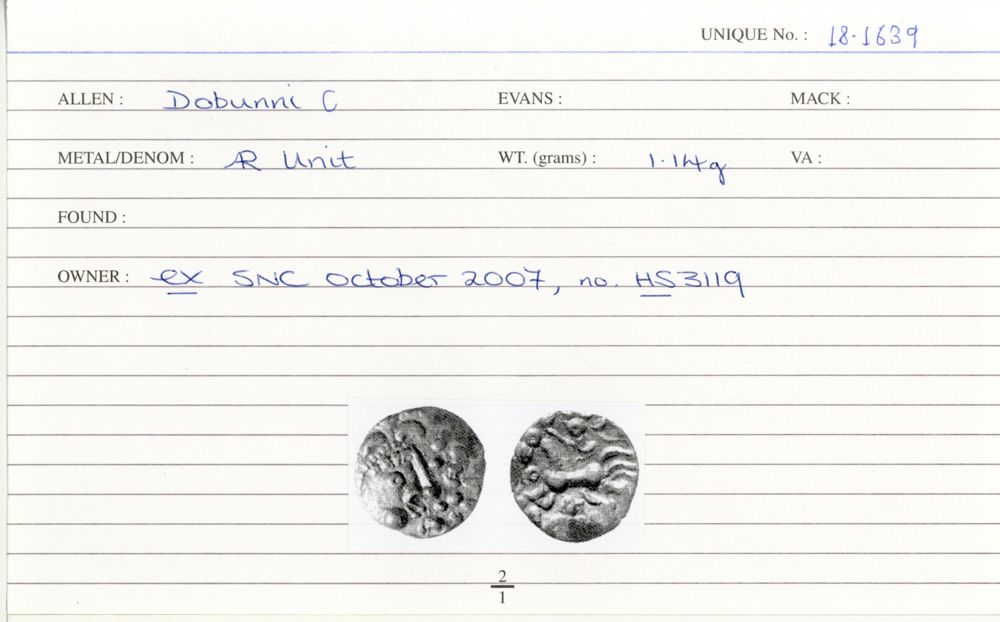 UNIQUE No. : 18.1639
ALLEN : Dobunni C EVANS : MACK :
METAL/DENOM : AR Unit WT. (grams) : 1.14g VA :
FOUND :
OWNER : ex SNC October 2007, no. HS3119
2
1